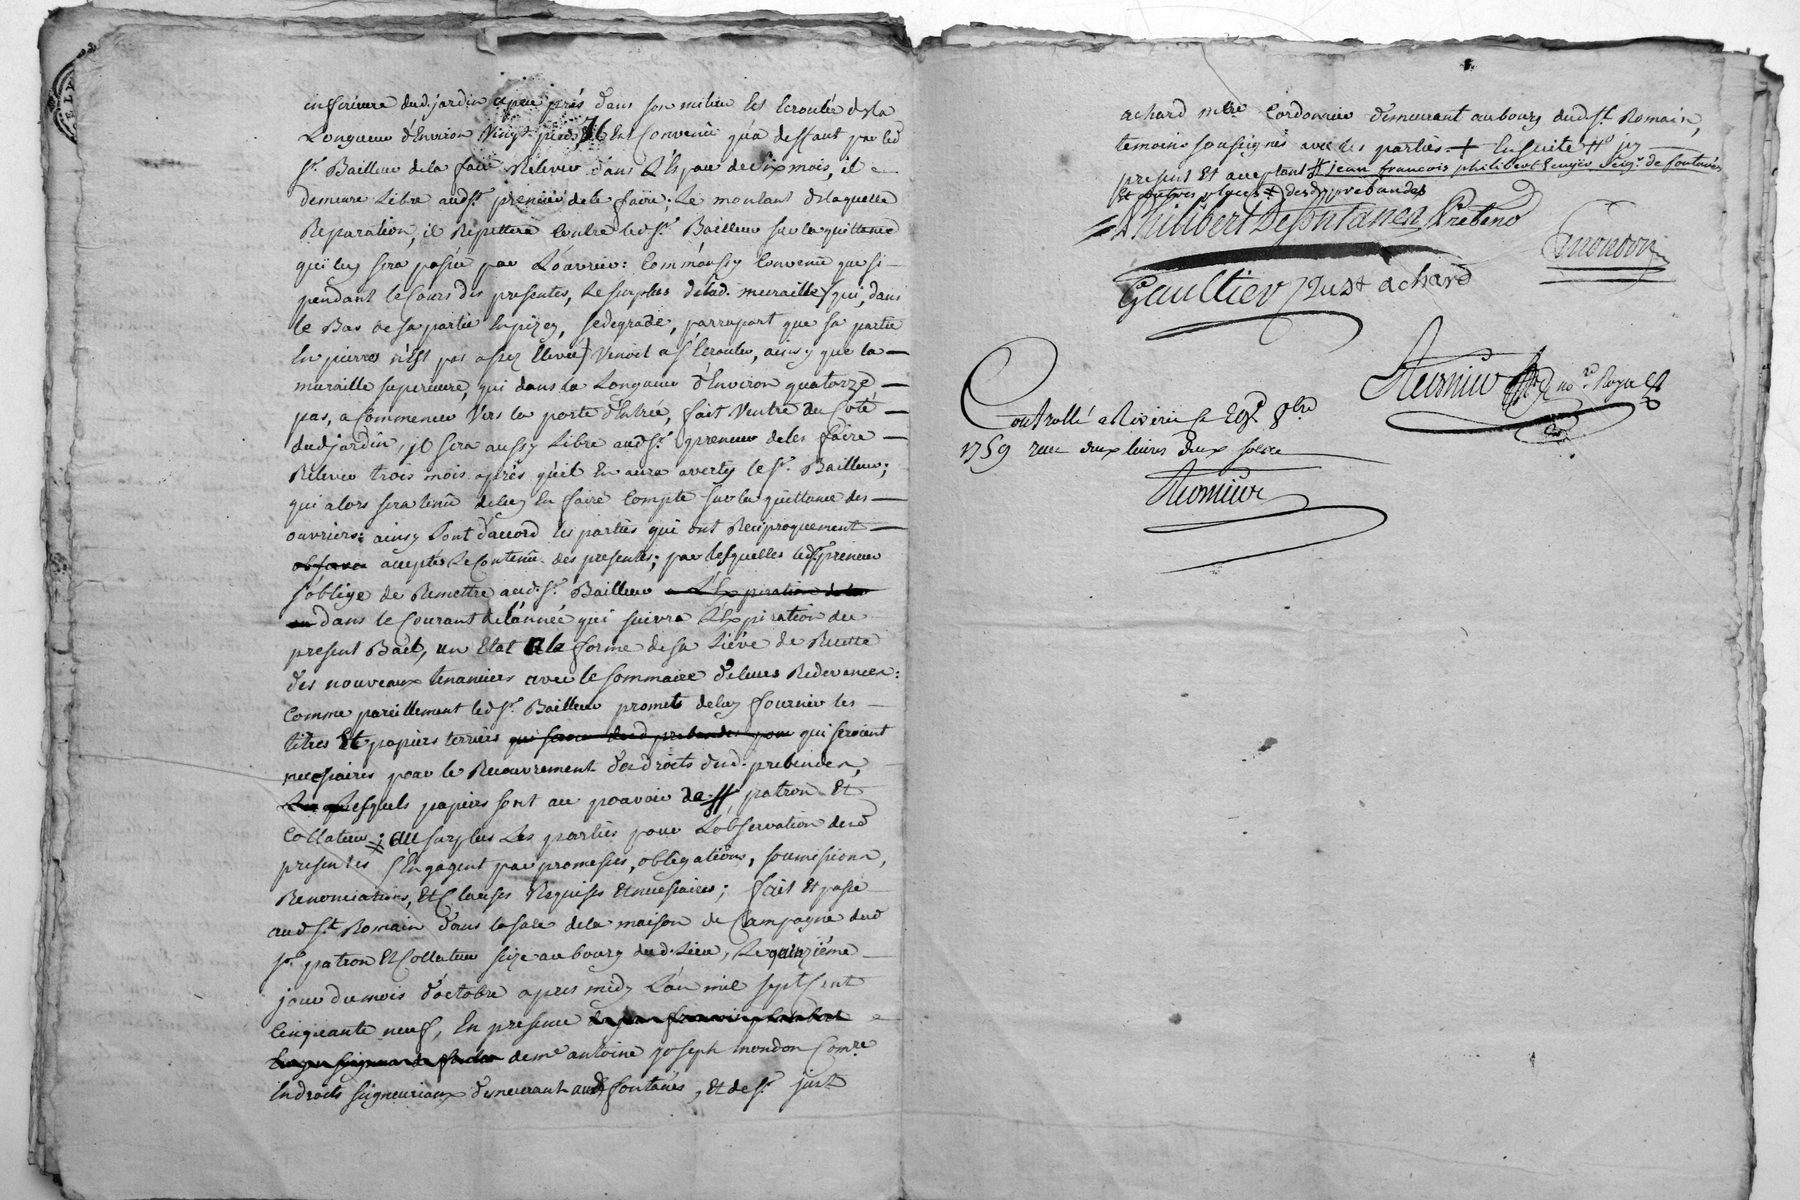 inferieure dud. jardin apeu prés dans son milieu est Ecroulée dela
Longueur d'Environ Vingt pieds Est Convenû qu'a deffaut par led
Sr. Bailleur dela faire Relever dans L'Espace de Six mois, il
demeure Libre audSr. preneur dela faire; Le montant delaquelle
Reparation, il Repettera Contre ledSr. Bailleur sur la quittance
qui luy sera passée par L'ouvrier: Commaussy Convenû que si
pendant le Cours des presentes, Le surplus delad. muraille (qui, dans
le Bas de sa partie En pizey, se degrade, parraport que sa partie
En pierres n'Est pas assez Elevée) Venoit a s'Ecrouler, ainsy que la
muraille superieure, qui dans la Longueur d'Environ quatorze
pas, a Commencer Vers la porte d'Entrée, fait Ventre du Coté
dud jardin, il sera aussy Libre audSr. preneur deles faire
Relever trois mois aprés qu'il En aura averty le Sr. Bailleur;
qui alors sera tenû deluy En faire Compte sur la quittance des
ouvriers: ainsy sont d'accord les parties qui ont Reciproquement
accepté Le Contenû des presentes; par lesquelles ledSr. preneur
s'oblige de Remettre audSr. Bailleur a L'Expiration de la
dans le Courant del'année qui suivra L'Expiration du
present Bail, un Etat Ala forme de sa Liéve de Recette
des nouveaux tenanciers avec le sommaire deleurs Redevances:
Comme pareillement ledSr. Bailleur promet deluy fournir les
titres Et papiers terriers qui seroient
necessaires pour le Recouvrement des droits dud. prebendes,
Lesquels papiers sont au pouvoir de # patron Et
Collateur; au surplus Les parties pour L'observation desd
presentes s'Engagent par promesses, obligations, soumissions,
Renonciations, Et Clauses Requises Et necessaires; fait Et passé
aud St. Romain dans la sale dela maison de Campagne dud
Sr. patron Et Collateur size au bourg dud. Lieu, Le quinziéme
jour du mois d'octobre apres midy L'an mil sept Cent
Cinquante neuf, En presence
de me antoine joseph mondon Comre
En droits seigneuriaux demeurant aud fontanés, Et de Sr. just
achard mtre Cordonnier demeurant au bourg dud St. Romain,
temoins soussignés avec les parties + Ensuite #
present Et acceptant # jean françois philibert Ecuyer Seigr. de fontanés
Et autres places + desd prebandes
Philibert Defontanes Prebend
Mondon
Gaultier Just achard
Meusnier no.re Royal
Controllé a Riverie Ce 29e. 8bre
1759 reçu deux livres deux sols
Meusnier